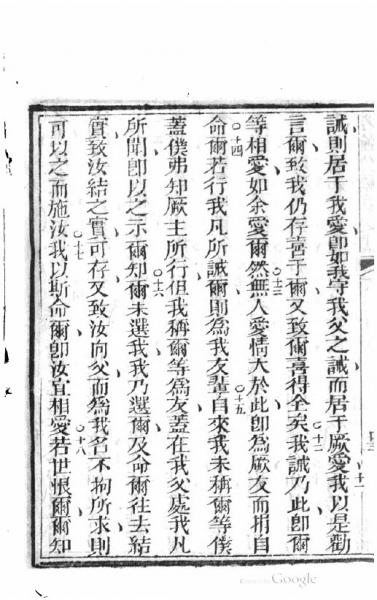 誡則居于我愛卽如我守我父之誡而居于厥愛我以是勸
十一
言爾致我仍存喜于爾又致爾喜得全矣我誡乃此卽爾
十二
等相愛如余愛爾然無人愛情大於此卽為厥友而捐自
十三
命爾若行我凡所誡爾則為我友輩自來我未稱爾等僕
十四
十五
蓋僕弗知厥主所行但我稱爾等為友蓋在我父處我凡
所聞卽以之示爾知爾未選我我乃選爾及命爾往去結
十六
實致汝結之實可存又致汝向父而為我名不拘所求則
可以之而施汝我以斯命爾卽汝宜相愛若世恨爾爾知
十七
十八
Google